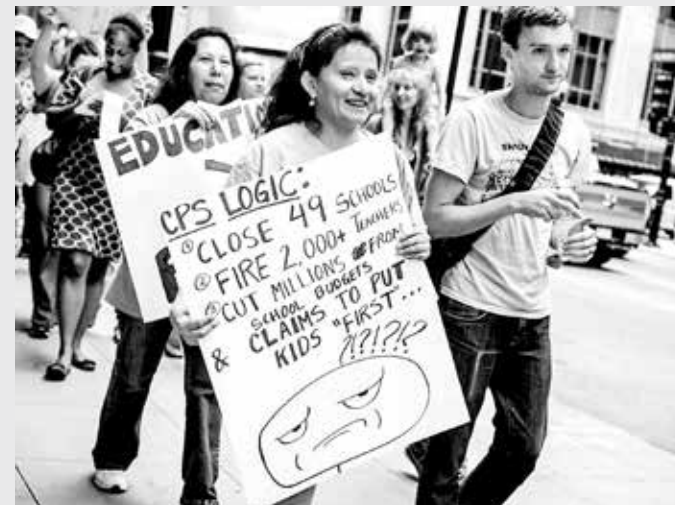 EDUCATI
CPS LOGIC:
① CLOSE 49 SCHOOLS
② FIRE 2,000+ TEACHERS
③ CUT MILLIONS FROM
SCHOOL BUDGETS
& CLAIMS TO PUT
KIDS "FIRST"...
?!?!?!?